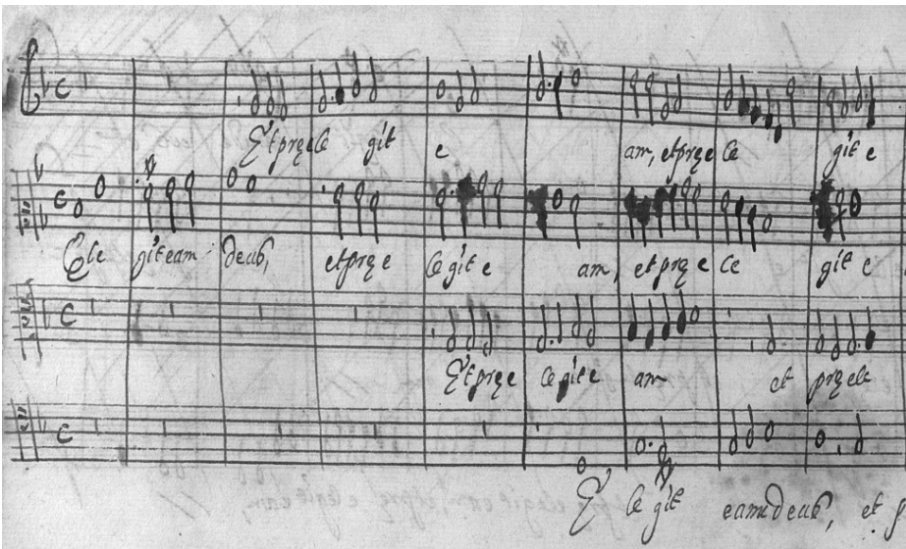 Et præele git e am, et præe le git e
Ele git eam deus, et præe le git e am, et præ e le git e
Et præe le git e am et præele
E le git eam deus, et p